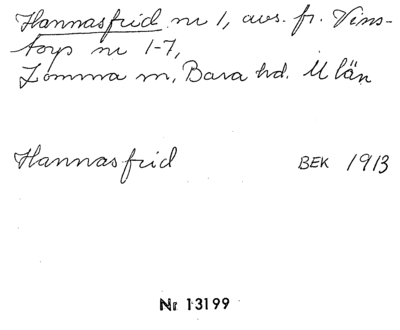 Hannasfrid nr 1, avs. fr. Vins-
torp nr 1-7,
Lomma sn, Bara hd. M län
Hannasfrid BEK 1913
Nr 13199